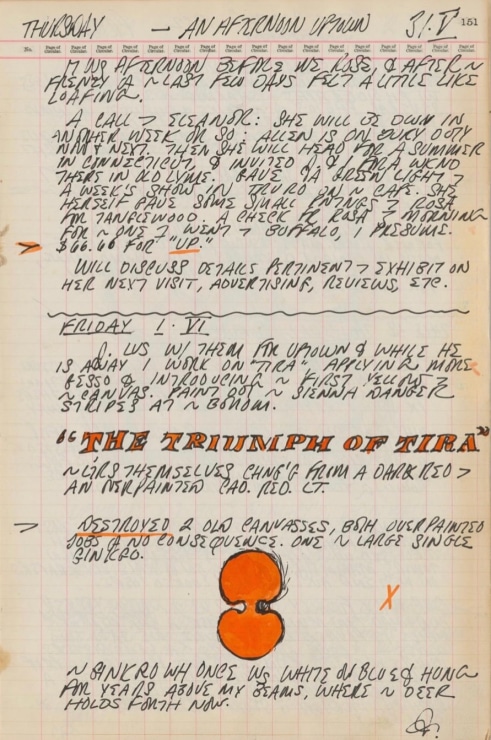 THURSDAY — AN AFTERNOON UPTOWN 31.V 151
No. Page of Circulars Page of Circulars Page of Circulars Page of Circulars Page of Circulars Page of Circulars Page of Circulars Page of Circulars Page of Circulars Page of Circulars Page of Circulars Page of Circulars Page of Circulars
WS AFTERNOON BEFORE WE ROSE, & AFTER ~
~ LAST FEW DAYS FELT A LITTLE LIKE
LOAFING.
A CALL > ELEANOR: SHE WILL BE DOWN IN
ANOTHER WEEK OR SO: ALLEN IS ON DUTY
NOW & NEXT. THEN SHE WILL HEAD FOR A SUMMER
IN CONNECTICUT, & INVITED & I FOR A WKND
THERE IN OLD LYME. GAVE A GREEN LIGHT >
A WEEK'S SHOW IN TRURO ON ~ CAPE. SHE
HERSELF GAVE SOME SMALL > ROSA
FOR TANGLEWOOD. A CHECK FR ROSA > MORNING
FOR ~ ONE > WENT > BUFFALO, I PRESUME.
> $66.66 FOR "UP."
WILL DISCUSS DETAILS PERTINENT > EXHIBIT ON
HER NEXT VISIT, ADVERTISING, REVIEWS, ETC.
FRIDAY 1.VI
WS W/ THEM FOR UPTOWN & WHILE HE
IS AWAY I WORK ON "TIRA" APPLYING MORE
GESSO & INTRODUCING ~ FIRST YELLOW >
~ CANVAS. PAINT OUT ~ SIENNA DANGER
STRIPES AT ~ BOTTOM.
"THE TRIUMPH OF TIRA"
~ THEMSELVES CHNG'G FROM A DARK RED >
AN OVERPAINTED CAD. RED. LT.
> DESTROYED 2 OLD CANVASSES, BOTH OVERPAINTED
JOBS & NO CONSEQUENCE. ONE ~ LARGE SINGLE
GINKGO.
X
~ GINKGO WH ONCE WS WHITE ON BLUE & HUNG
FOR YEARS ABOVE MY BEAMS, WHERE ~ DEER
HOLDS FORTH NOW.